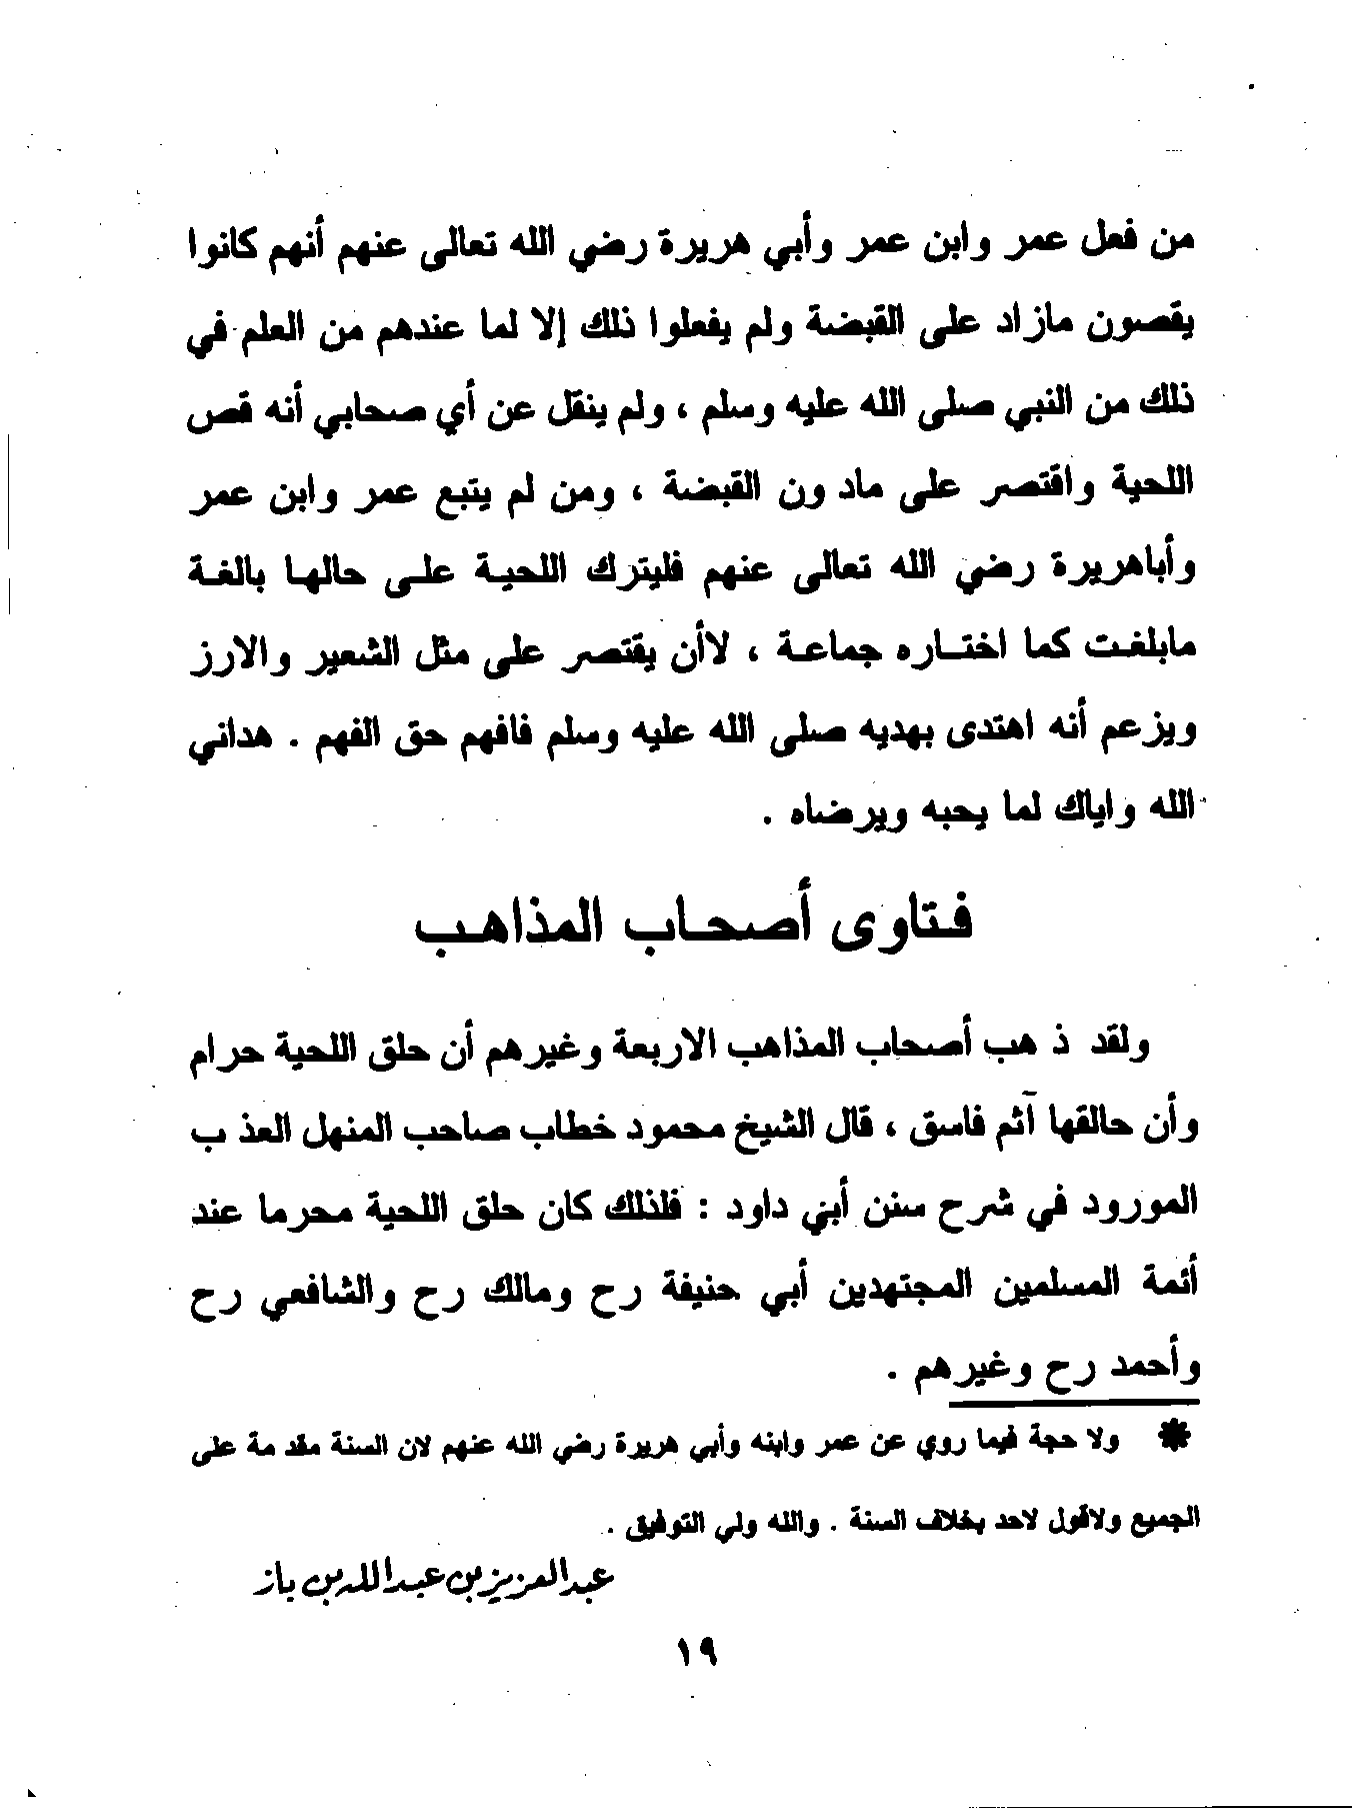 من فعل عمر وابن عمر وأبي هريرة رضي الله تعالى عنهم أنهم كانوا
يقصون مازاد على القبضة ولم يفعلوا ذلك إلا لما عندهم من العلم في
ذلك من النبي صلى الله عليه وسلم ، ولم ينقل عن أي صحابي أنه قص
اللحية واقتصر على مادون القبضة ، ومن لم يتبع عمر وابن عمر
وأباهريرة رضي الله تعالى عنهم فليترك اللحية على حالها بالغة
مابلغت كما اختاره جماعة ، لاأن يقتصر على مثل الشعير والارز
ويزعم أنه اهتدى بهديه صلى الله عليه وسلم فافهم حق الفهم . هداني
الله واياك لما يحبه ويرضاه .
فتاوى أصحاب المذاهب
ولقد ذهب أصحاب المذاهب الاربعة وغيرهم أن حلق اللحية حرام
وأن حالقها آثم فاسق ، قال الشيخ محمود خطاب صاحب المنهل العذب
المورود في شرح سنن أبي داود : فلذلك كان حلق اللحية محرما عند
أئمة المسلمين المجتهدين أبي حنيفة رح ومالك رح والشافعي رح
وأحمد رح وغيرهم .
* ولا حجة فيما روي عن عمر وابنه وأبي هريرة رضي الله عنهم لان السنة مقدمة على
الجميع ولاقول لاحد بخلاف السنة . والله ولي التوفيق .
عبدالعزيز بن عبدالله بن باز
١٩